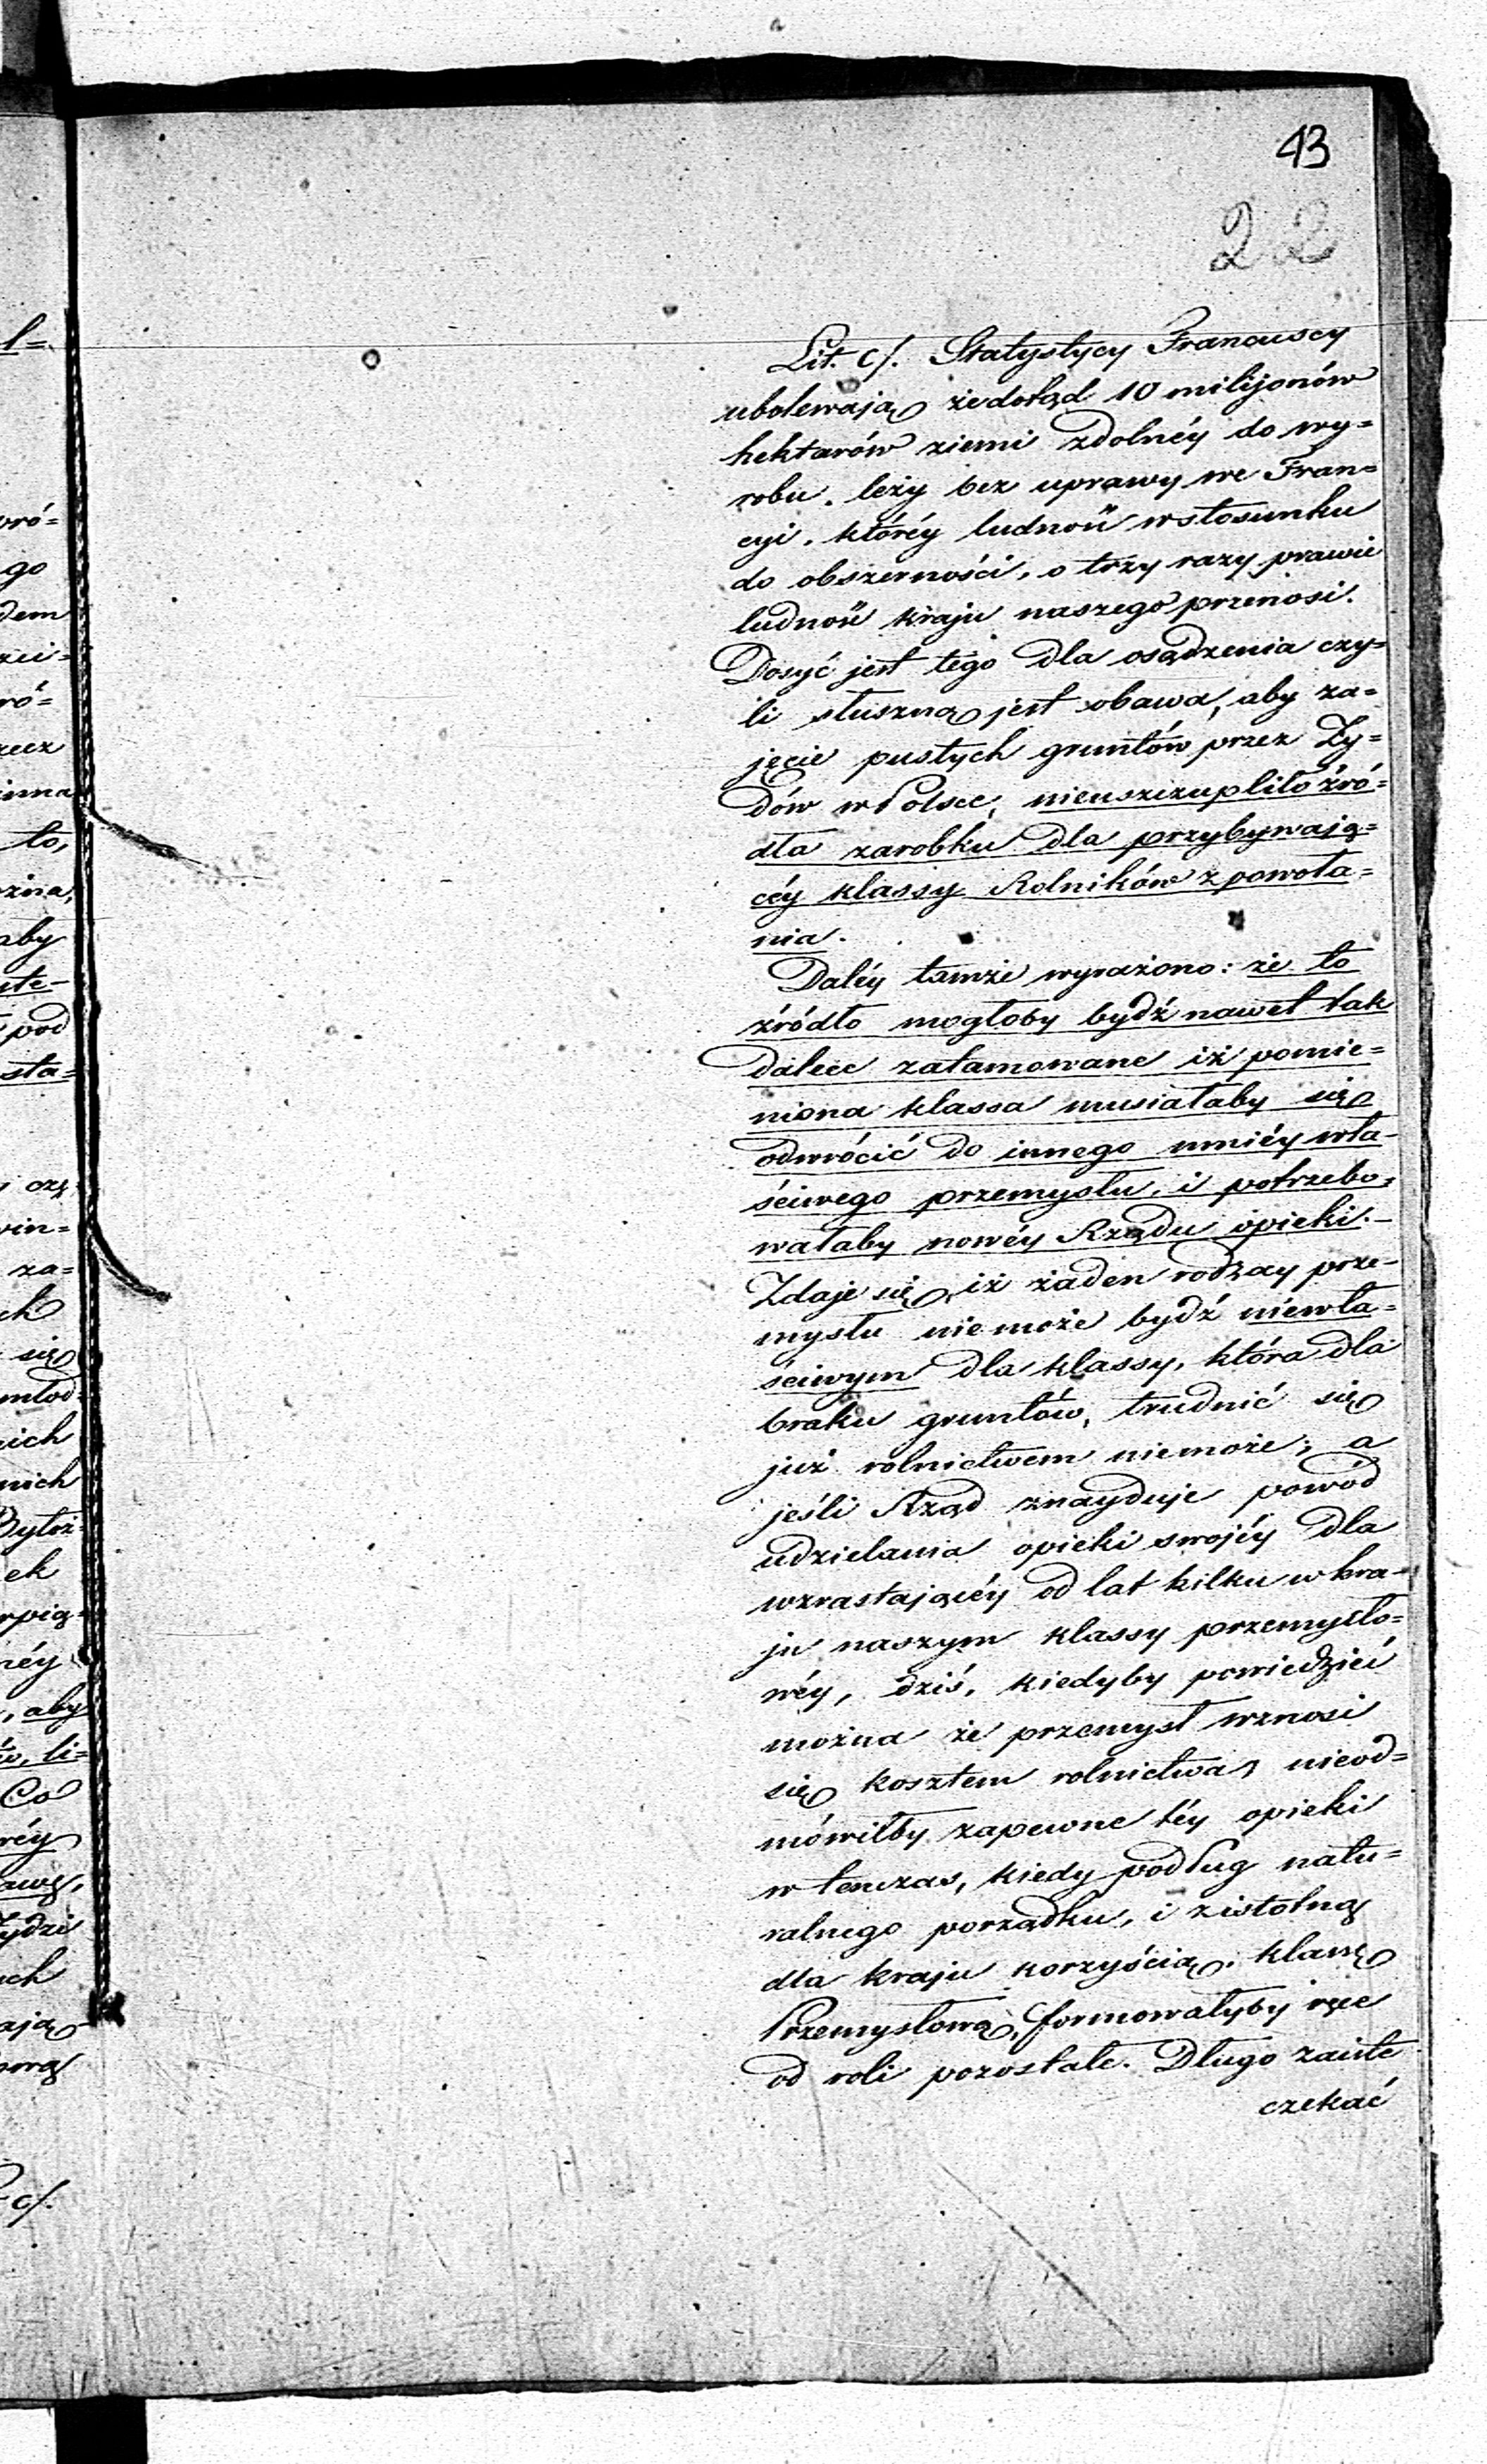 43
22
Lit. c/. Statystycy Francuscy
ubolewają że dotąd 10 milijonów
hektarów ziemi zdolnéy do wy=
robu, leży bez uprawy we Fran=
cyi, któréy ludność w stosunku
do obszerności, o trzy razy prawie
ludność kraju naszego przenosi.
Dosyć jest tego dla osądzenia czy=
li słuszną jest obawa, aby za=
jęcie pustych gruntów przez Ży=
dów w Polsce, nieuszczupliło źró=
dła zarobku dla przybywają=
céy klassy Rolników z powoła=
nia.
Daléy tamże wyrażono: że to
źródło mogłoby bydź nawet tak
dalece zatamowane iż pomie=
niona klassa musiałaby się
odwrócić do innego mniéy wła-
ściwego przemysłu, i potrzebo=
wałaby nowéy Rządu opieki.-
Zdaje się, iż żaden rodzay prze-
mysłu nie może bydź niewła=
ściwym dla klassy, która dla
braku gruntów, trudnić się
już rolnictwem niemoże; a
jeśli Rząd znayduje powód
udzielania opieki swojéy dla
wzrastającéy od lat kilku w kra-
ju naszym klassy przemysło=
wéy, dziś, kiedyby powiedzieć
można że przemysł wznosi
się kosztem rolnictwa, nieod=
mówiłby zapewne téy opieki
w tenczas, kiedy podług natu=
ralnego porządku, i z istotną
dla kraju korzyścią, klassę
Przemysłową, formowałyby ręce
od roli pozostałe. Długo zaiste
czekać